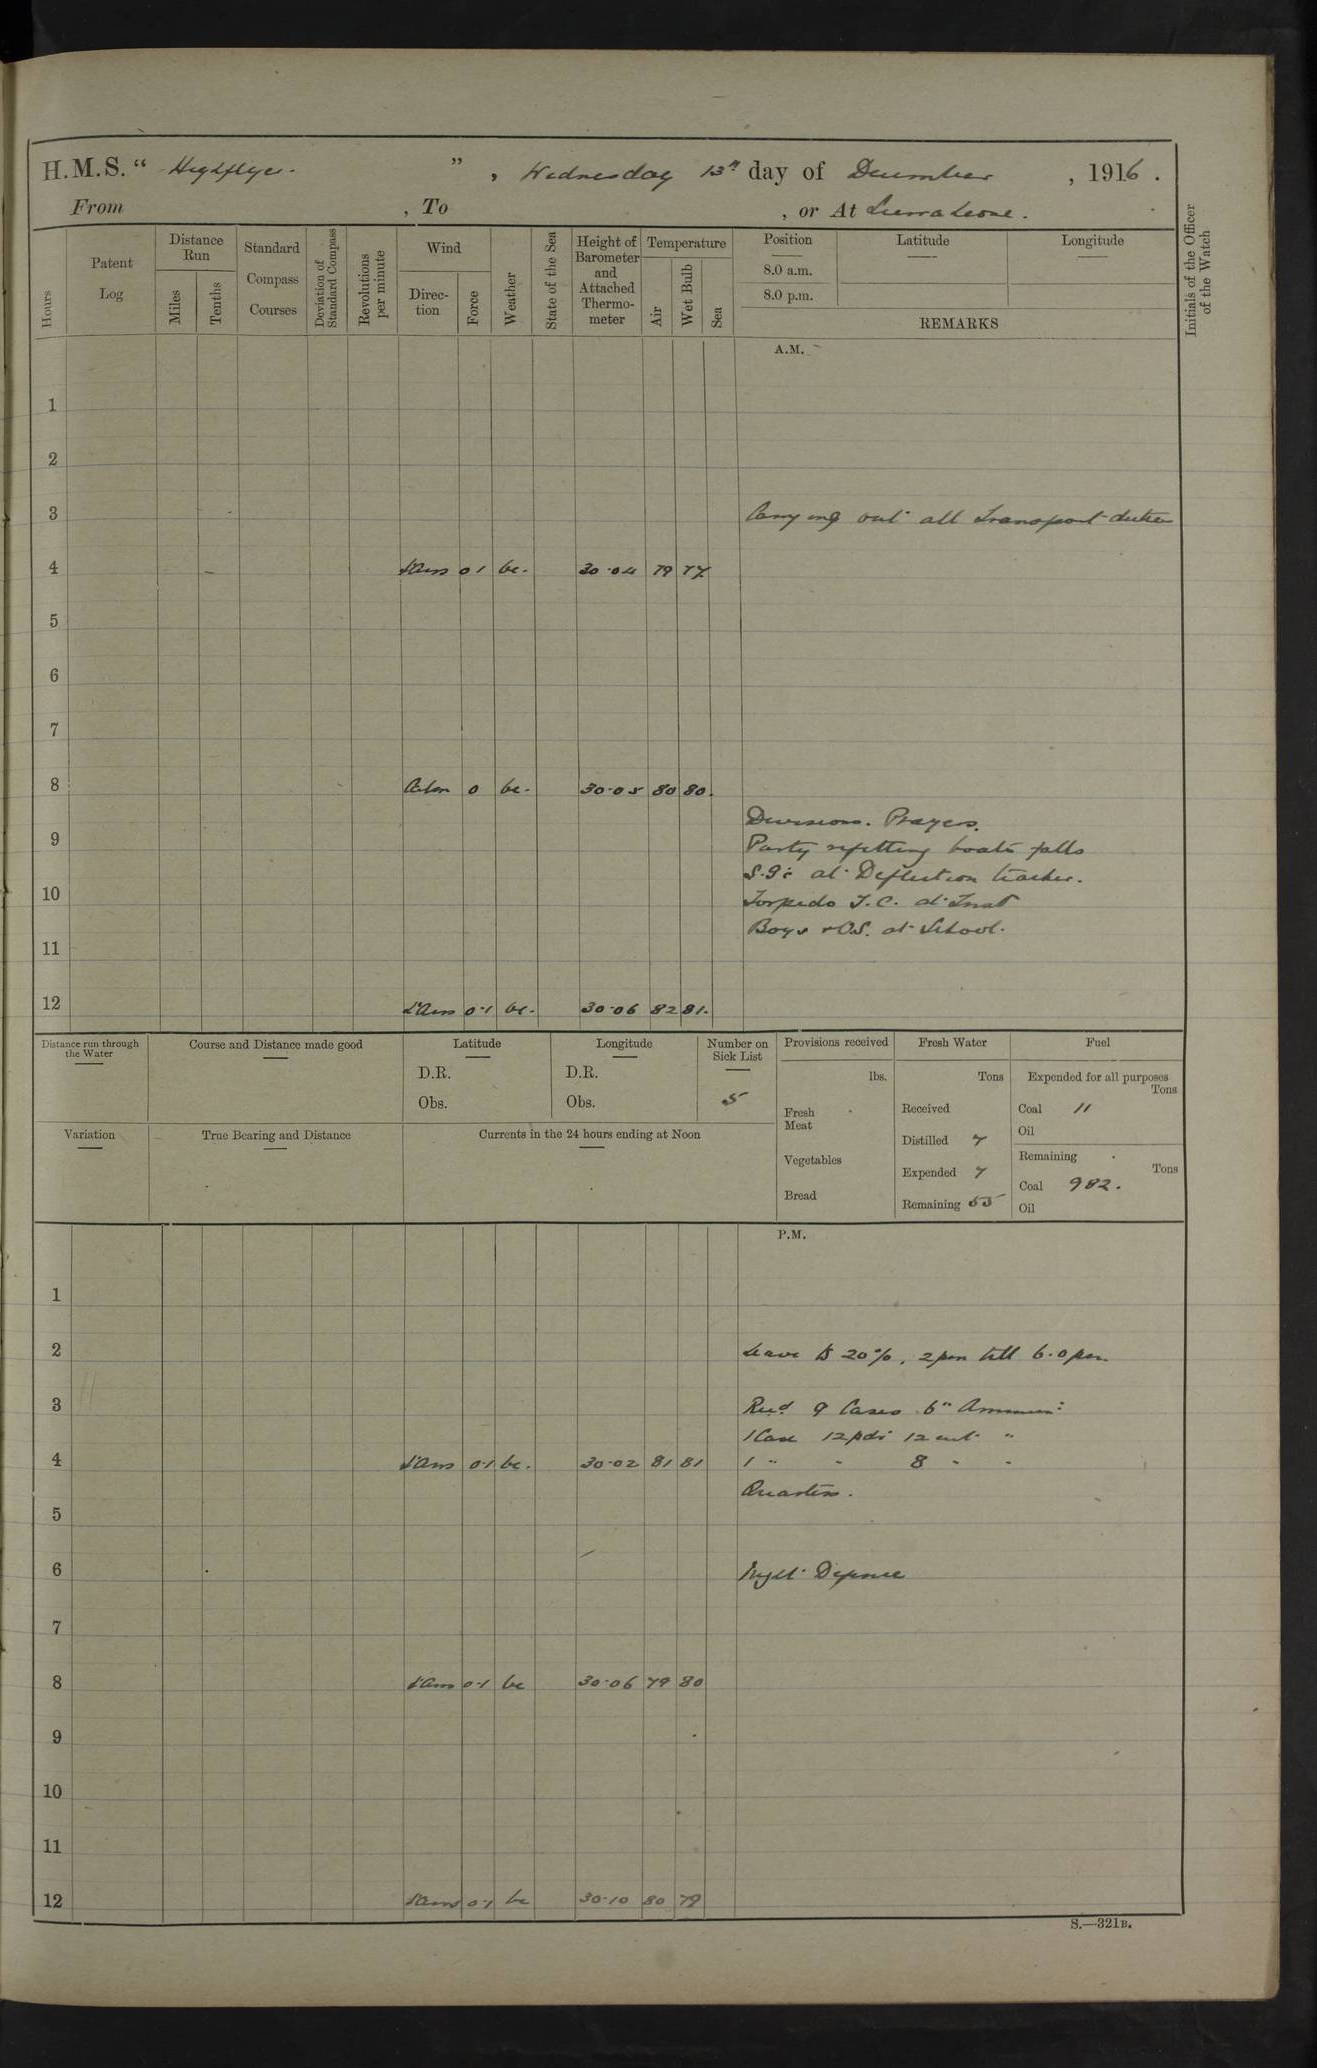 H.M.S. " Highflyer. ", Wednesday 13th day of December, 1916.
From , To , or At Sierra Leone.
Hours
Patent Log
Distance Run
Miles
Tenths
Standard Compass Courses
Deviation of Standard Compass
Revolutions per minute
Wind
Direc-tion
Force
Weather
State of the Sea
Height of Barometer and Attached Thermo-meter
Temperature
Air
Wet Bulb
Sea
Position
8.0 a.m.
8.0 p.m.
Latitude
Longitude
REMARKS
Initials of the Officer of the Watch
A.M.
1
2
3 Carrying out all Transport duties
4 0 1 bc. 30.04 79 77
5
6
7
8 Calm 0 bc. 30.05 80 80.
Divisions. Prayers.
9 Party refitting boats falls
S.G's at Deflection teacher.
10 Torpedo T.C. at Inst
Boys & OS. at School.
11
12 0.1 bc. 30.06 82 81.
Distance run through the Water
Course and Distance made good
Latitude
D.R.
Obs.
Longitude
D.R.
Obs.
Number on Sick List
5
Provisions received
lbs.
Fresh Meat
Vegetables
Bread
Fresh Water
Tons
Received
Distilled 7
Expended 7
Remaining 55
Fuel
Expended for all purposes
Tons
Coal 11
Oil
Remaining
Tons
Coal 982.
Oil
Variation
True Bearing and Distance
Currents in the 24 hours ending at Noon
P.M.
1
2 Leave to 20%, 2pm till 6.0pm.
3 Recd 9 Cases 6" Ammun:
1 Case 12pdr 12cwt "
4 0.1 bc. 30.02 81 81 1 " " 8 " "
Quarters.
5
6 Night Defence
7
8 0.1 bc 30.06 79 80
9
10
11
12 0.1 bc 30.10 80 79
S.—321B.